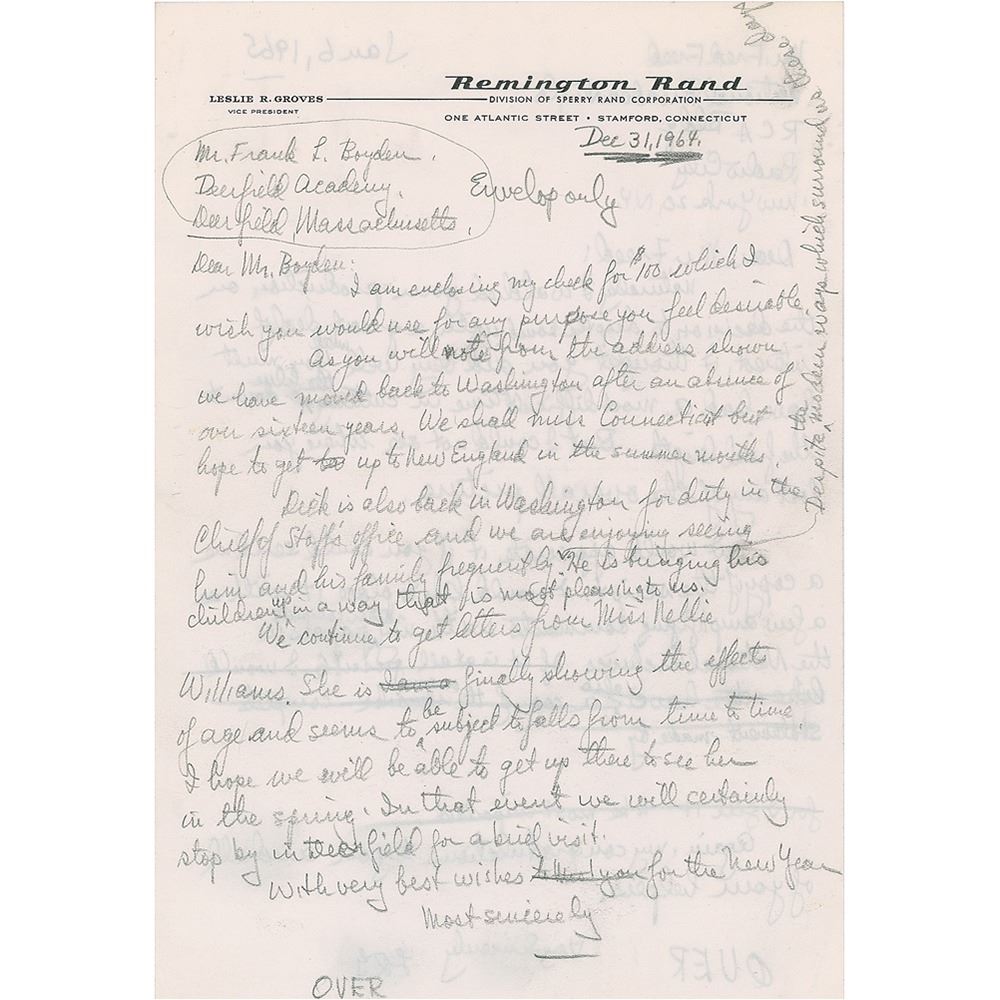 Remington Rand
LESLIE R. GROVES
DIVISION OF SPERRY RAND CORPORATION
VICE PRESIDENT
ONE ATLANTIC STREET • STAMFORD, CONNECTICUT
Dec 31, 1964.
Mr. Frank L. Boyden.
Deerfield Academy.
Deerfield, Massachusetts.
Envelop only
Dear Mr. Boyden:
I am enclosing my check for $100 which I
wish you would use for any purpose you feel desirable
As you will note from the address shown
we have moved back to Washington after an absence of
over sixteen years. We shall miss Connecticut but
hope to get up to New England in the summer months.
Dick is also back in Washington for duty in the
Chief of Staff's office and we are enjoying seeing
him and his family frequently. He is bringing his
children up in a way that is most pleasing to us.
Despite the modern ways which surround us these days
We continue to get letters from Miss Nellie
Williams. She is I am a finally showing the effects
of age and seems to be subject to falls from time to time.
I hope we will be able to get up there to see her
in the spring. In that event we will certainly
stop by in Deerfield for a brief visit.
With very best wishes you for the New Year
Most sincerely
OVER